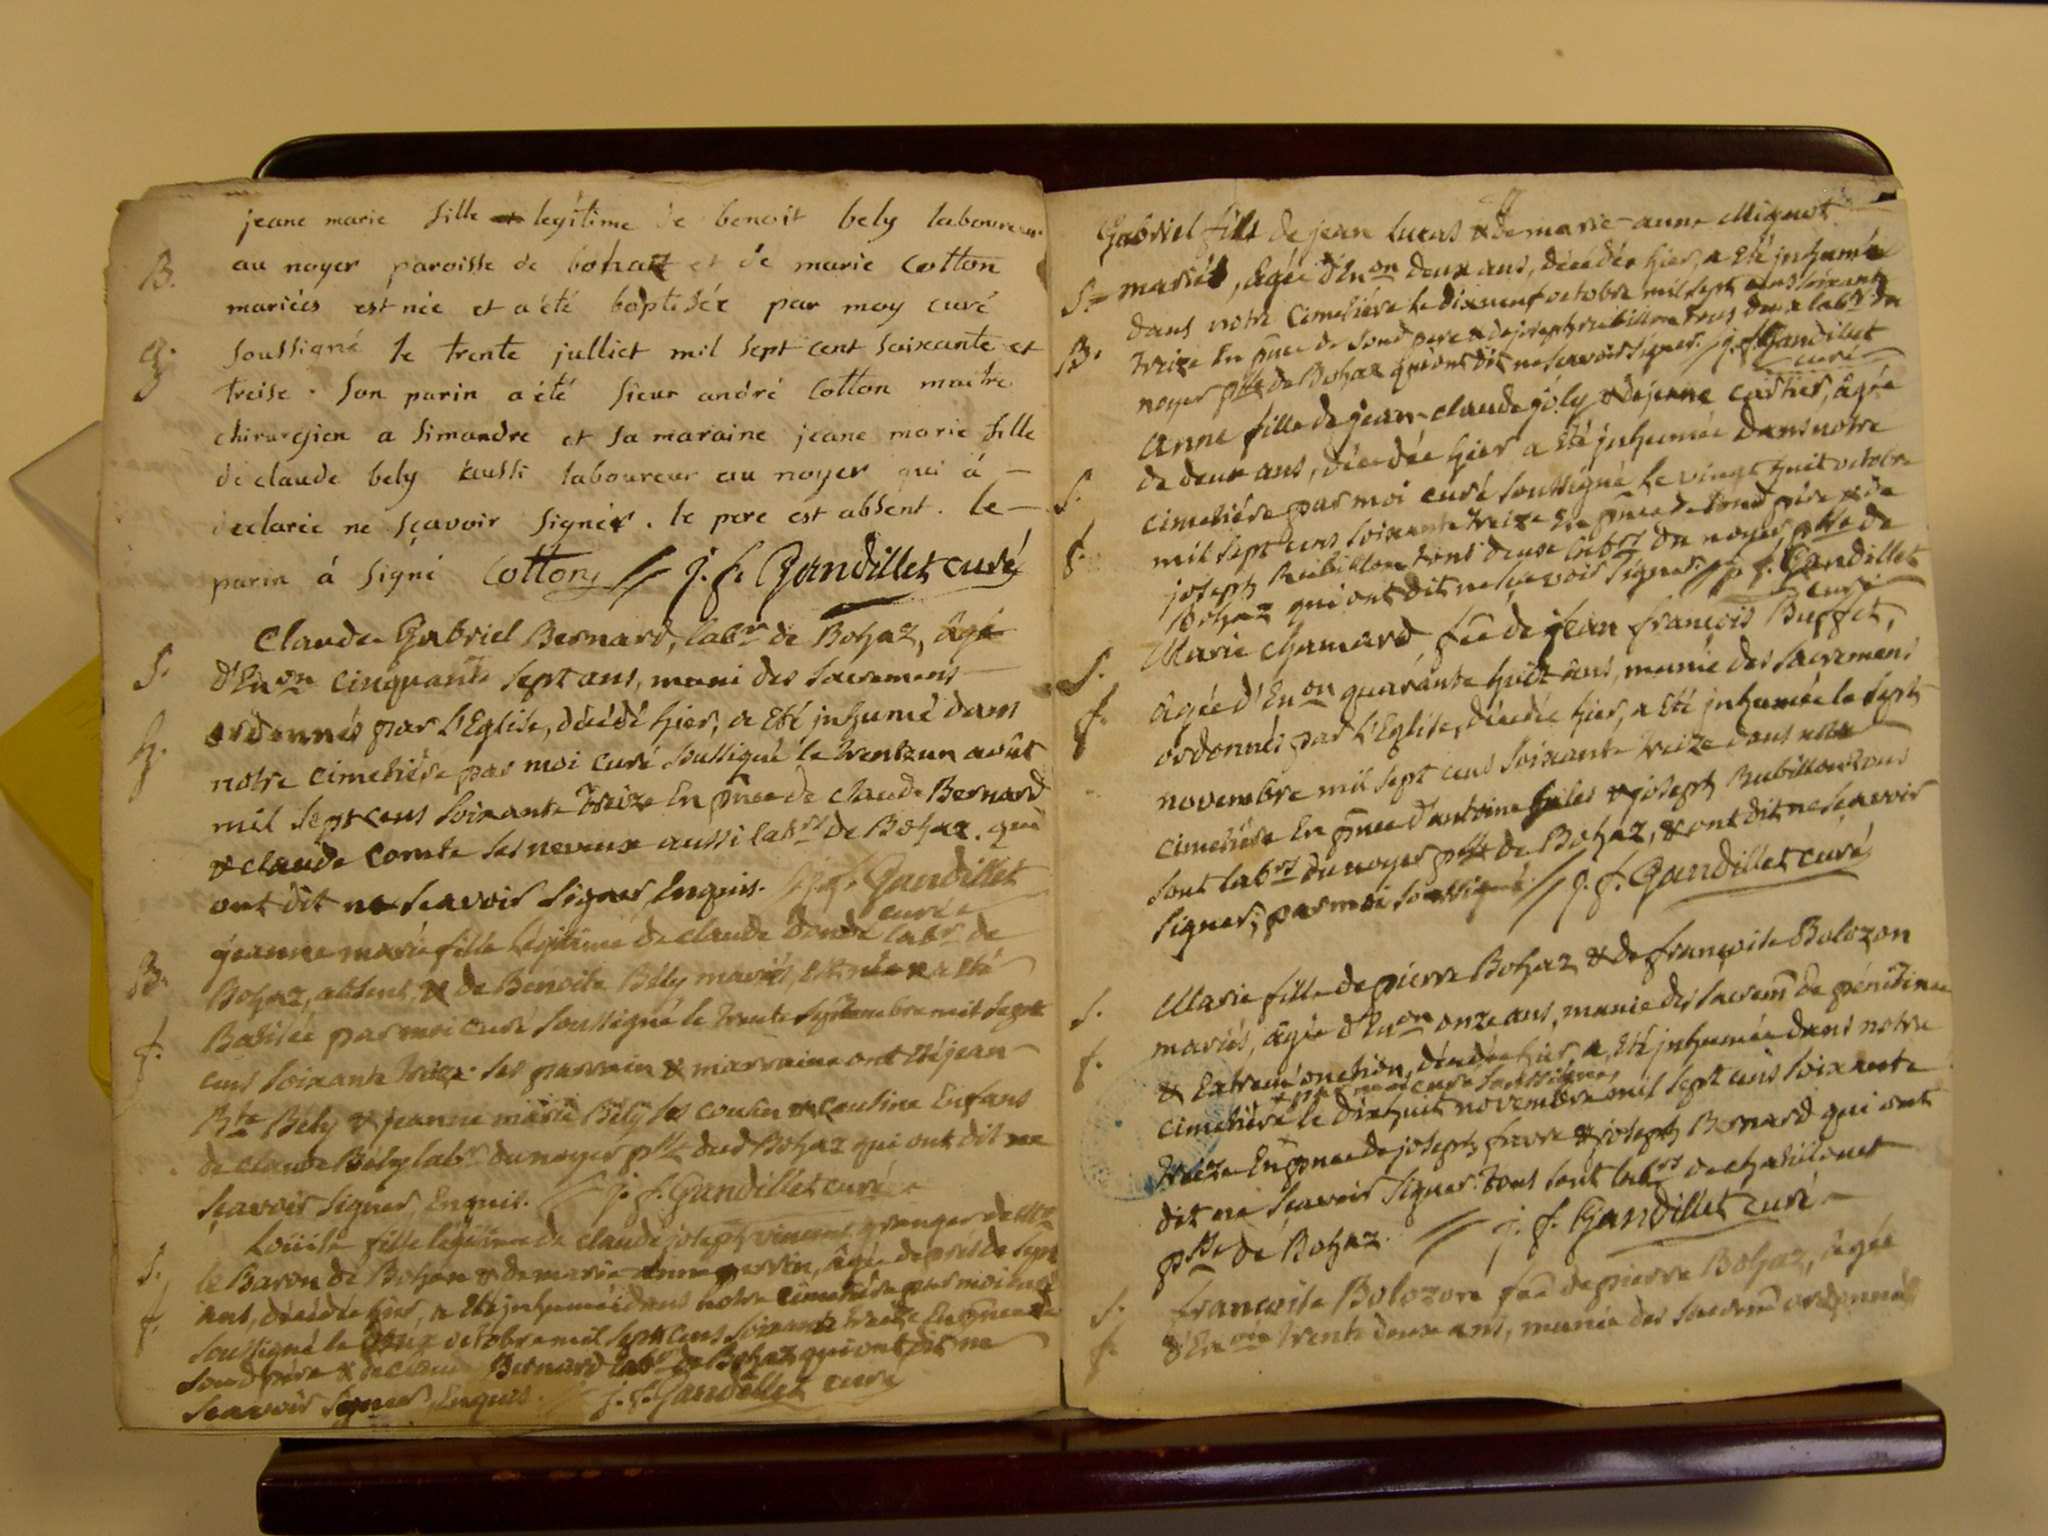 jeane marie fille legitime de benoit bely laboureur
B. au noyer paroisse de bohaz et de marie Cotton
mariées est née et a été baptisée par moy curé
soussigné le trente julliet mil sept cent soixante et
treise. Son parin a été sieur andré Cotton maitre
chirurgien a simandre et sa maraine jeane marie fille
de claude bely aussi laboureur au noyer qui á
declarée ne sçavoir signer. le pere est absent. le
parin á signé Cotton // j. f. Gandillet curé
Claude Gabriel Bernard, labr de Bohaz, âgé
S. d'Enon cinquante sept ans, muni des sacremens
ordonnés par l'Eglise, décédé hier, a Eté inhumé dans
notre cimetiére par moi curé soussigné le trentzun août
mil sept cens soixante treize En pnce de claude Bernard
& claude comte ses neveux aussi labrs de Bohaz. qui
ont dit ne sçavoir signer, Enquis. j. f. Gandillet
curé
B. jeanne marie fille légitime de claude labr de
Bohaz, absent, & de Benoite Bély mariés, Est née & a Eté
Batisée par moi curé soussigné le trente septembre mil sept
f. cens soixante treize. ses parrain & marraine ont Eté jean
Bte Bély & jeanne marie Bély ses cousin & cousine Enfans
de claude Bély labr du noyer psse dud Bohaz qui ont dit ne
sçavoir signer, Enquis. // j. f. Gandillet curé
Loüise fille légitime de claude joseph vincent granger de Mr
S. le Baron de Bohan & de marie Anne perrin, âgée de près de sept
ans, décédée hier, a Eté inhumée dans notre cimetiére par moi curé
f. soussigné le onze octobre mil sept cens soixante treize En pnce de
Soud père & de claude Bernard labr de Bohaz qui ont dit ne
sçavoir signer, Enquis. // j. f. Gandillet curé
Gabriel fils de jean lucas & de marie-anne Mignot
S. mariés, âgée d'Enon deux ans, décédée hier, a Eté inhumé
dans notre cimetiére le dixneuf octobre mil sept cens soixante
treize En pnce de Soud pere & de joseph rubillon tous deux labrs du
noyer psse de Bohaz qui ont dit ne sçavoir signer. // j. f. Gandillet
curé
Anne fille de jean-claude joly & de jeanne cartier, âgée
S. de deux ans, décédée hier a Eté inhumée dans notre
cimetiére par moi curé soussigné le vingt huit octobre
f. mil sept cens soixante treize En pnce de Soud pére & de
joseph Rubillon tous deux labrs du noyer, psse de
Bohaz qui ont dit ne sçavoir signer. // j. f. Gandillet
curé
S. Marie chamard, fe de jean françois Buffet,
f. âgée d'Enon quarante huit ans, munie des sacremens
ordonnés par l'Eglise, décédée hier, a Eté inhumée le sept
novembre mil sept cens soixante treize dans notre
cimetiére En pnce d'antoine & joseph Rubillon tous
sont labrs du noyer psse de Bohaz, & ont dit ne sçavoir
signer, par moi soussigné. // j. f. Gandillet curé
S. Marie fille de pierre Bohaz & de françoise Bolozon
mariés, âgée d'Enon onze ans, munie des sacrem de pénitence
f. & Extreme onction, décédée hier, a Eté inhumée dans notre
par moi curé soussigné
cimetiére le dixhuit novembre mil sept cens soixante
treize En pnce de joseph favre & joseph Bernard qui ont
dit ne sçavoir signer. tous sont labrs de
psse de Bohaz. // j. f. Gandillet curé
S. françoise Bolozon fe de pierre Bohaz, âgée
f. d'Enon trente deux ans, munie des sacrem ordonnés